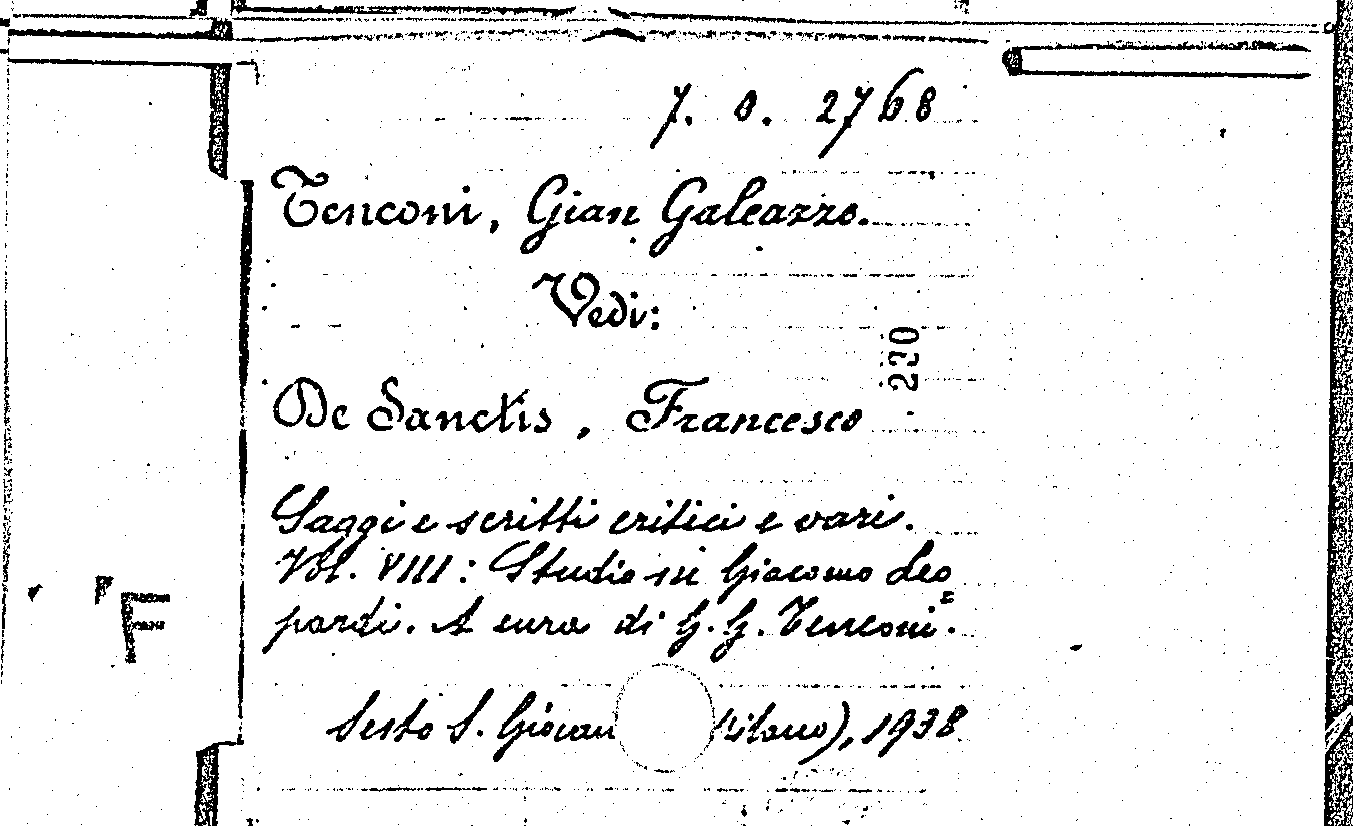 7. 0. 2768
Tenconi, Gian Galeazzo.
Vedi:
230
De Sanctis, Francesco
Saggi e scritti critici e vari.
Vol. VIII: Studio su Giacomo Leo=
pardi. A cura di G. G. Tenconi.
Sesto S. Giovan ilano), 1938
F